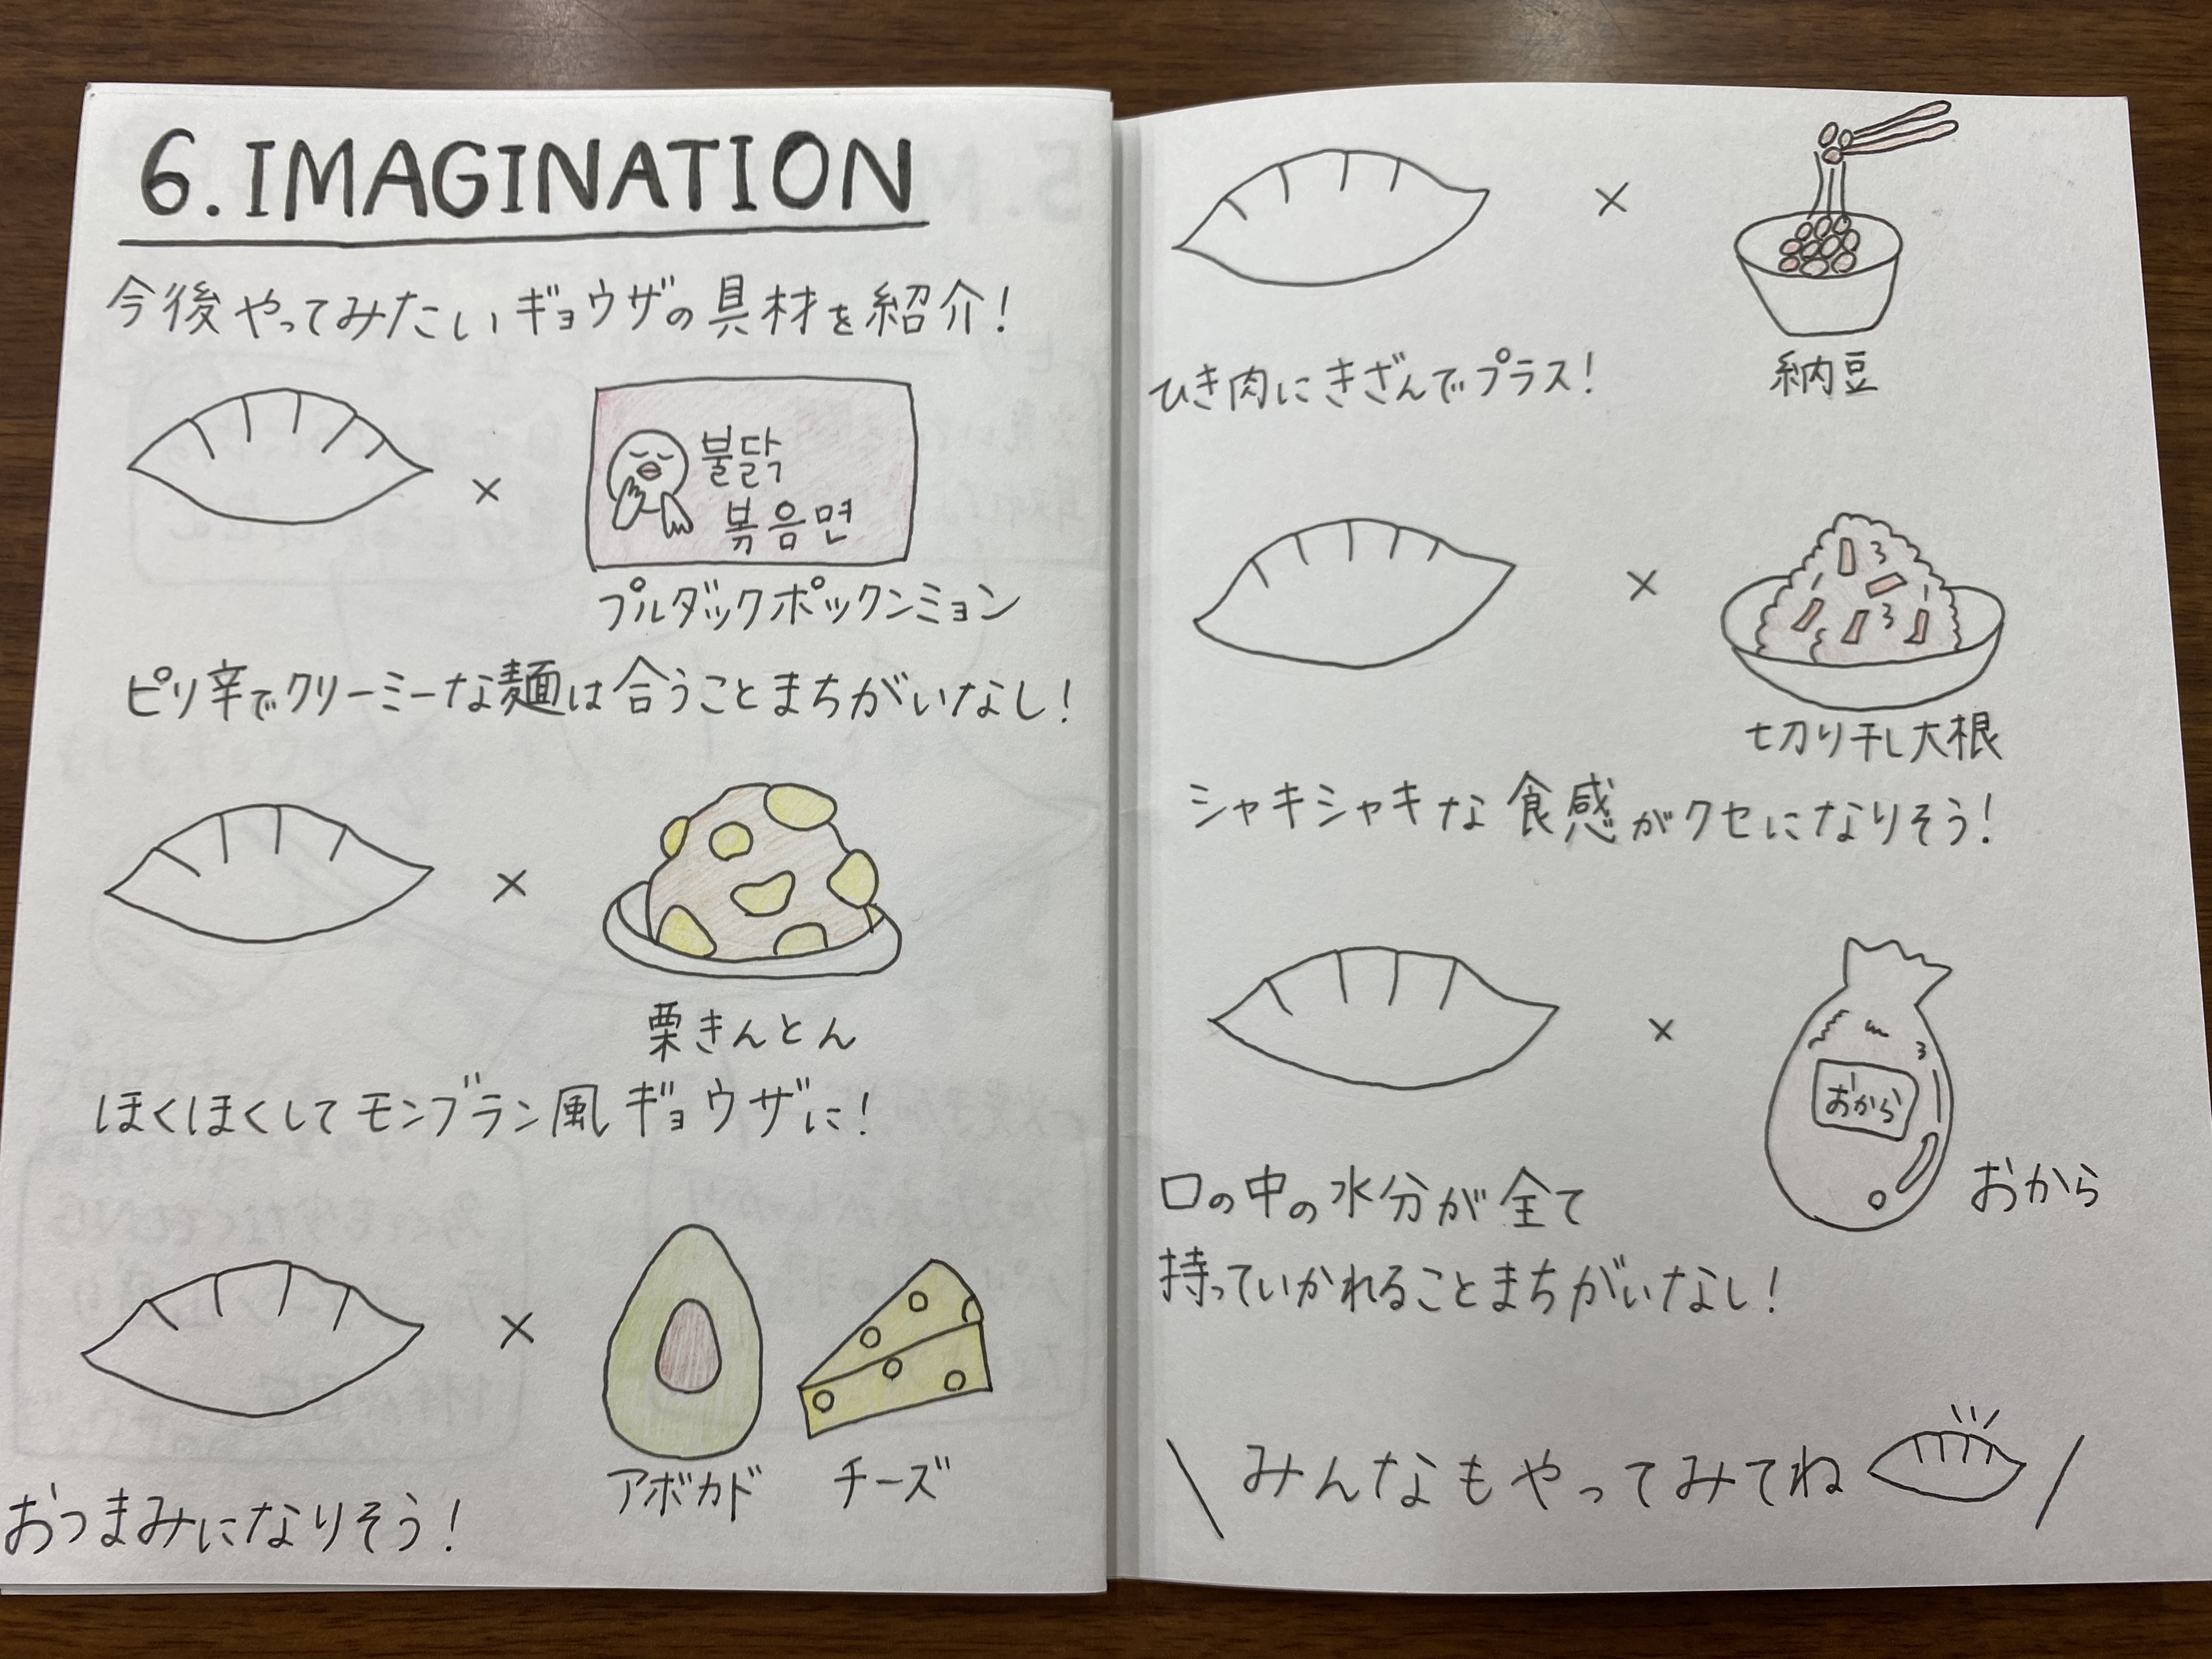 6. IMAGINATION
今後やってみたいギョウザの具材を紹介!
×
불닭
볶음면
プルダックポックンミョン
ピリ辛でクリーミーな麺は合うことまちがいなし!
×
栗きんとん
ほくほくしてモンブラン風ギョウザに!
×
アボカド チーズ
おつまみになりそう!
×
納豆
ひき肉にきざんでプラス!
×
切り干し大根
シャキシャキな食感がクセになりそう!
×
おから
おから
口の中の水分が全て
持っていかれることまちがいなし!
\ みんなもやってみてね /